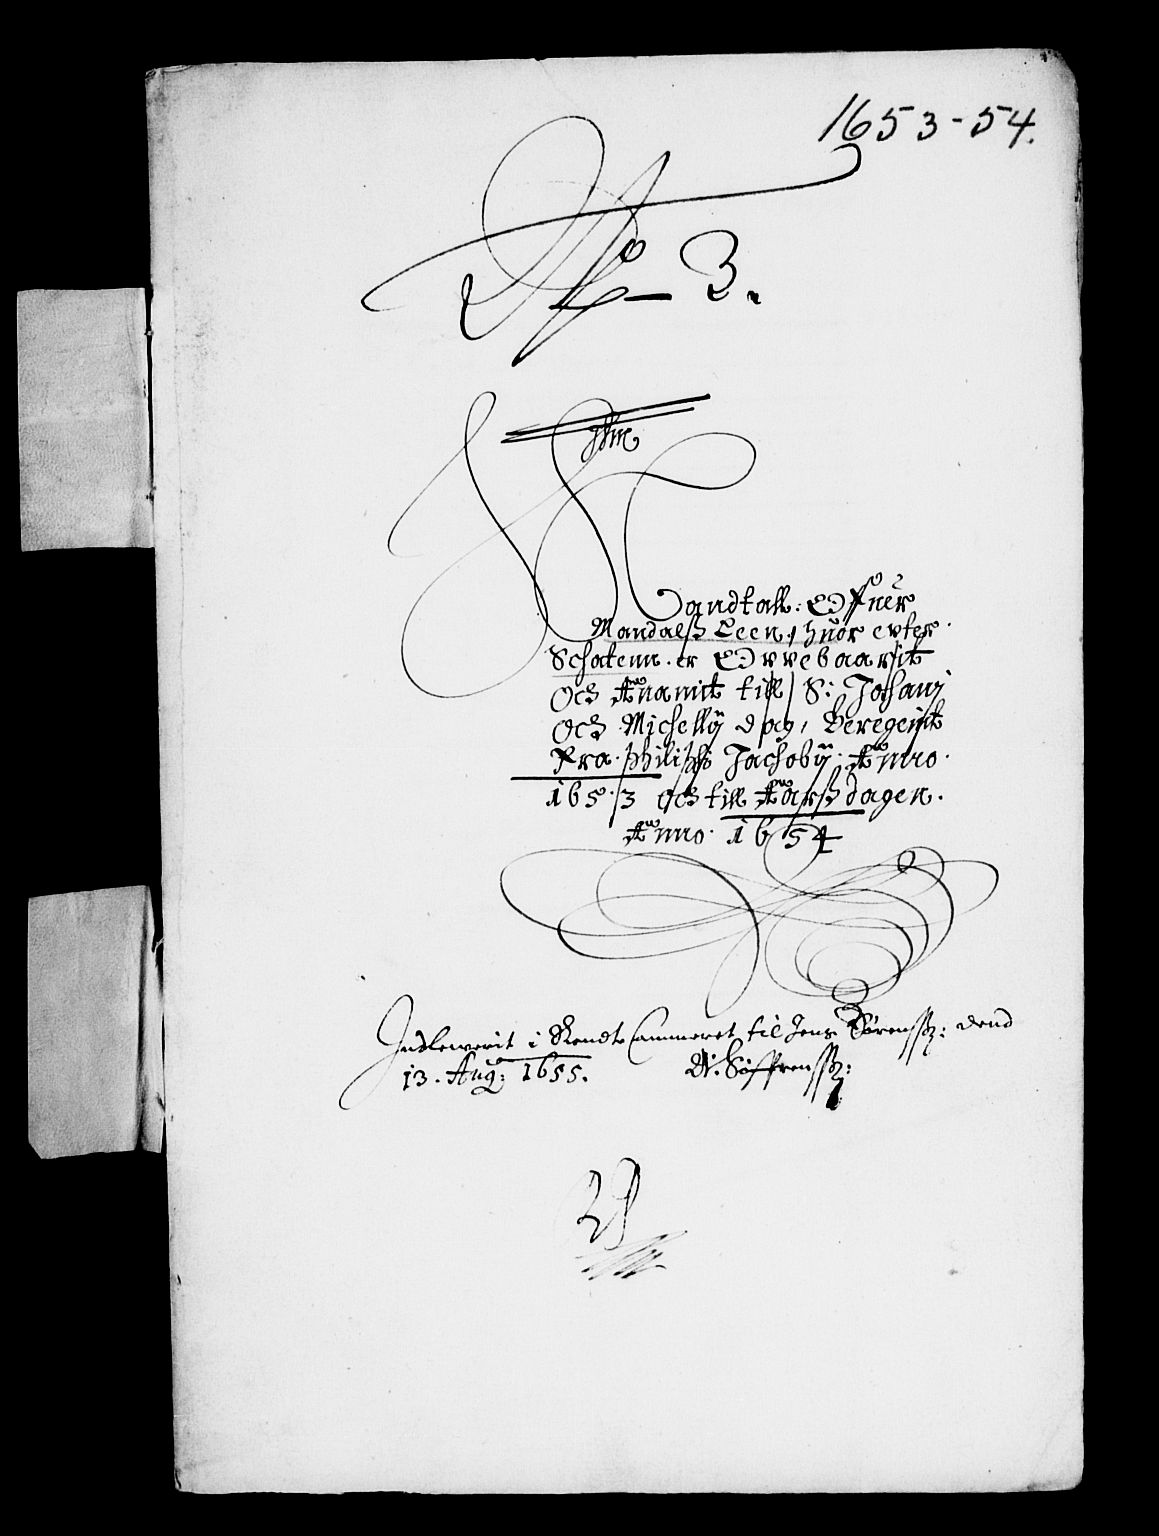 1653-54.
No 3.
Mandtall: Offuer
Mandalß Leen, huor epter
Schatenn er Oppebaarsit
Och Annamit till S: Johanj
Och Michellÿ dag, Beregeint
Fra Philippi Jachobÿ Anno
1653 och till Aarsß dagen.
Anno 1654
Indleverit i Rendte Cammeret til Jens Sørenssøn dend
13. Aug: 1655.